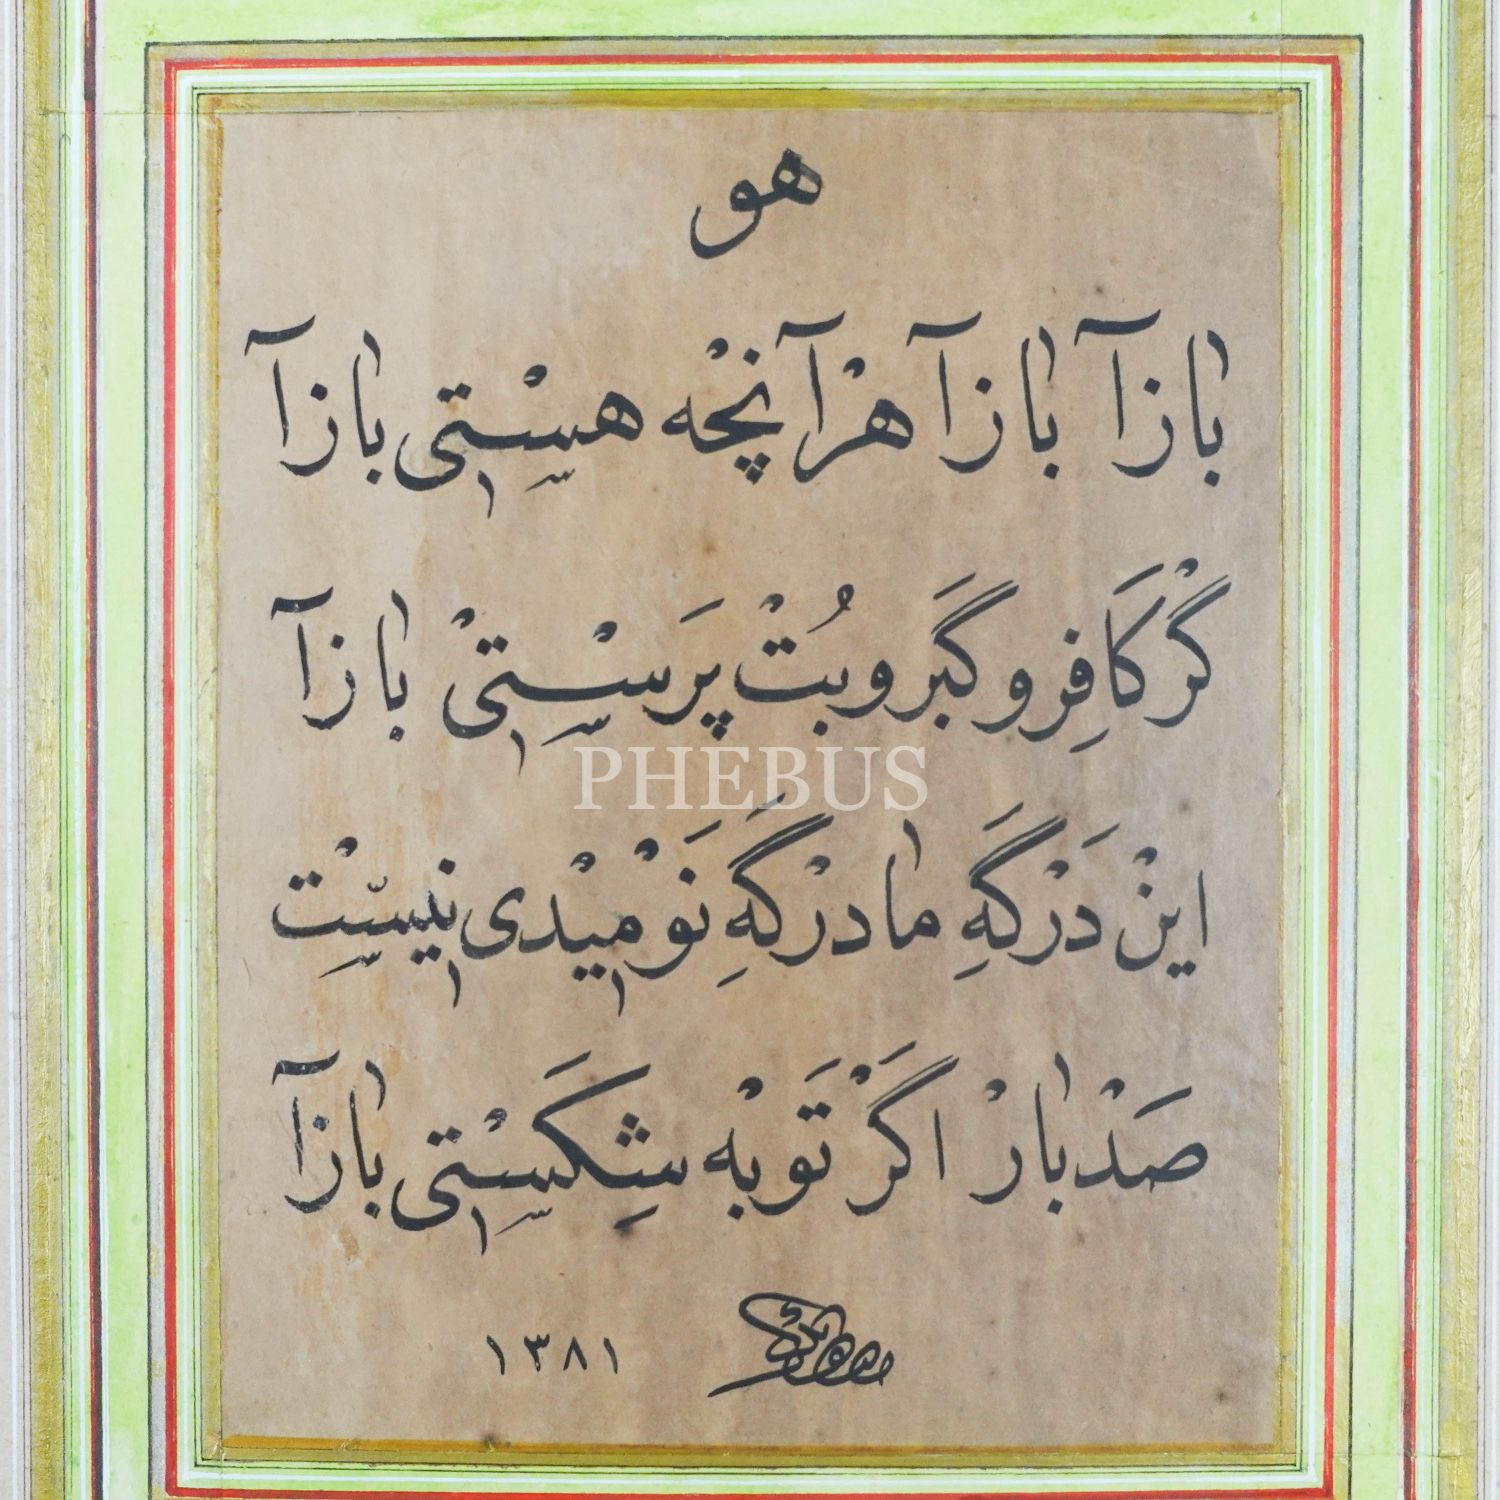 هو
بازآ بازآ هرْ آنچْه هسْتی بازآ
گرْ کافِر و گَبر و بُتْ پَرَسْتیْ بازآ
PHEBUS
اینْ دَرْگَهِ ما درْگَهِ نَوْمیْدی نیسْت
صَدْ بارْ اگَرْ تَوبْه شِکَسْتی بازآ
۱۳۸۱